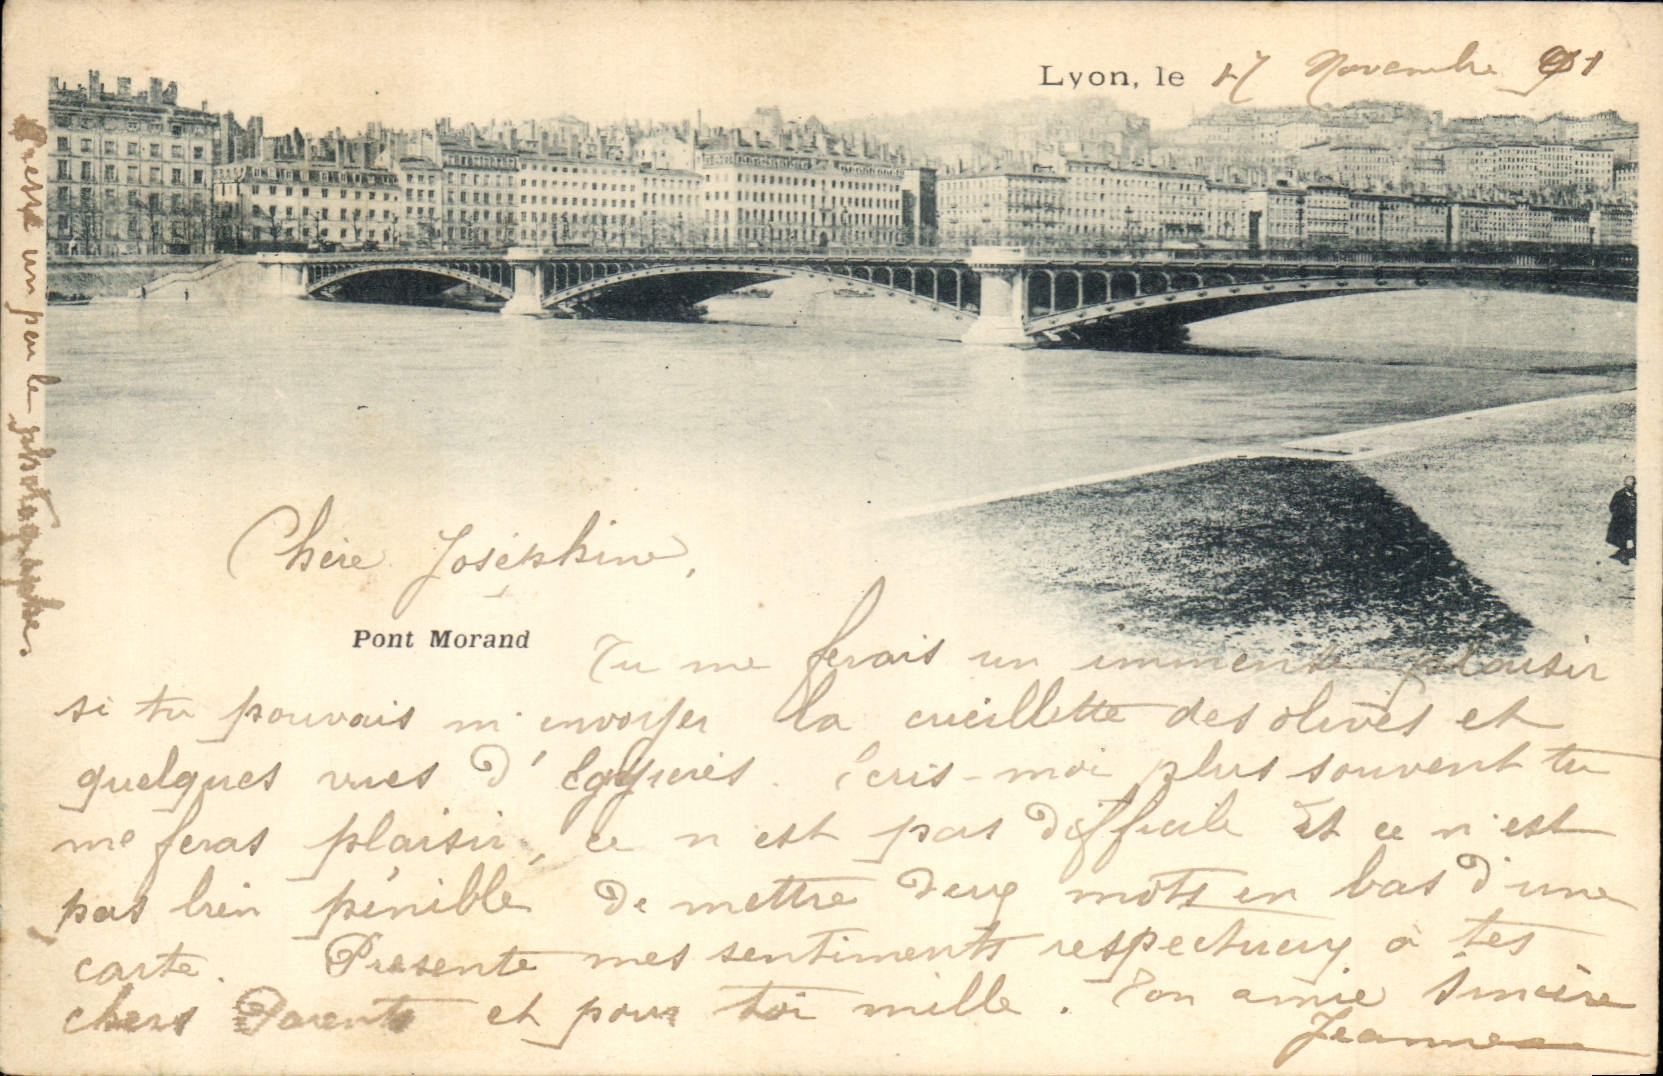 Lyon, le 17 Novembre 901
Chère Joséphine,
Pont Morand
Tu me ferais un immense plaisir
si tu pouvais m'envoyer la cueillette des olives et
quelques vues d'
Ecris-moi plus souvent tu
me feras plaisir, ce n'est pas difficile Et ce n'est
pas bien pénible de mettre deux mots en bas d'une
carte. Présente mes sentiments respectueux à tes
chers Parents et pour toi mille. Ton amie sincère
Jeanne
Presse un peu le photographe.